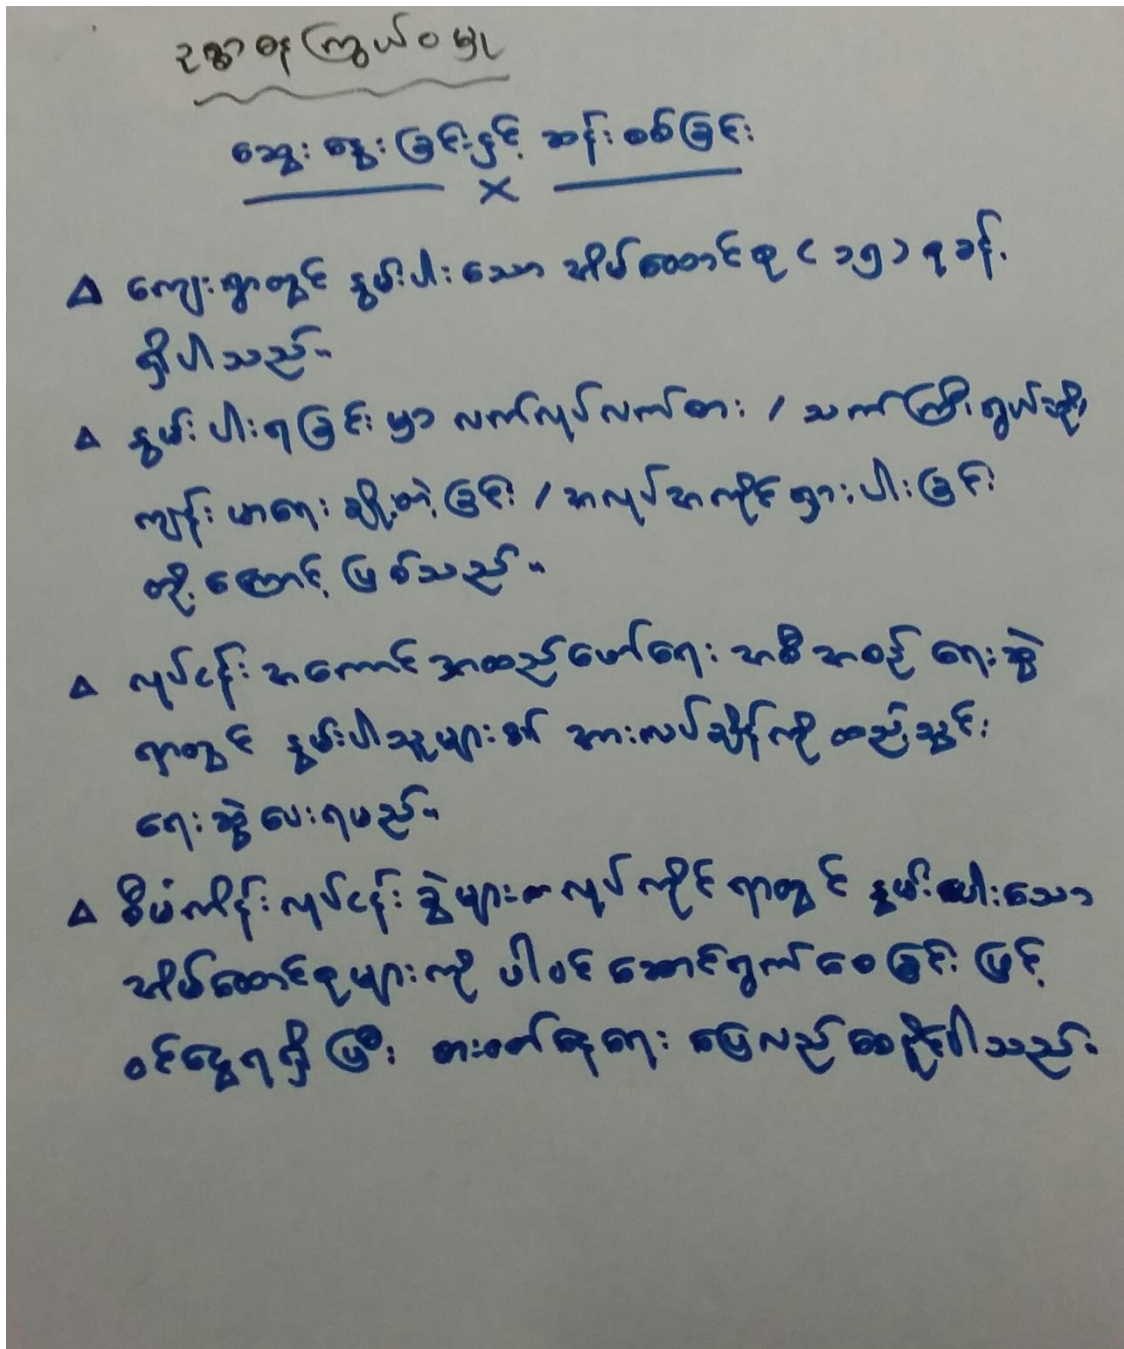 ဥစ္စာဓနကြွယ်ဝမှု
ဆွေးနွေးခြင်းနှင့် ဆန်းစစ်ခြင်း
△ ကျေးရွာတွင် နွမ်းပါးသော အိမ်ထောင်စု (၁၅) စုခန့်
ရှိပါသည်။
△ နွမ်းပါးရခြင်းမှာ လက်လုပ်လက်စား / သက်ကြီးရွယ်အို/
ကျန်းမာရေး ချို့တဲ့ခြင်း / အလုပ်အကိုင်ရှားပါးခြင်း
တို့ကြောင့် ဖြစ်သည်။
△ လုပ်ငန်း အကောင်အထည်ဖော်ရေး အစီအစဉ် ရေးဆွဲ
ရာတွင် နွမ်းပါးသူများ၏ အားလပ်ချိန်ကို ထည့်သွင်း
ရေးဆွဲပေးရမည်။
△ စီမံကိန်းလုပ်ငန်းခွဲများ လုပ်ကိုင်ရာတွင် နွမ်းပါးသော
အိမ်ထောင်စုများကို ပါဝင်ဆောင်ရွက်စေခြင်းဖြင့်
ဝင်ငွေရရှိပြီး စားဝတ်နေရေး ပြေလည်စေနိုင်ပါသည်။